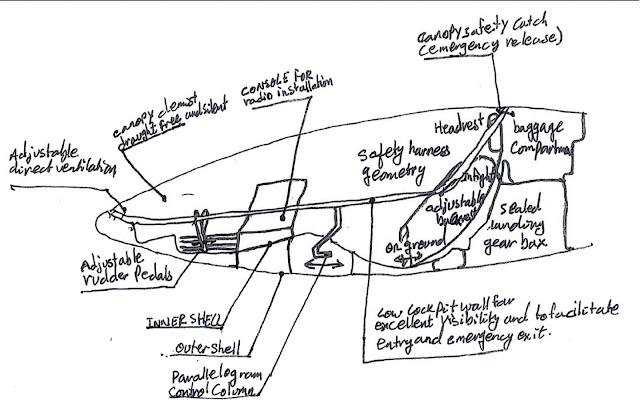 canopy safety catch
(emergency release)
canopy demist
draught free and silent
CONSOLE FOR
radio installation
Headrest
baggage
Compartment
Safety harness
geometry
Adjustable
direct ventilation
Inflight
adjustable
backrest
on ground
Sealed
landing
gear box
Adjustable
rudder Pedals
INNER SHELL
Outer shell
Parallelogram
Control Column
Low cockpit wall for
excellent visibility and to facilitate
entry and emergency exit.